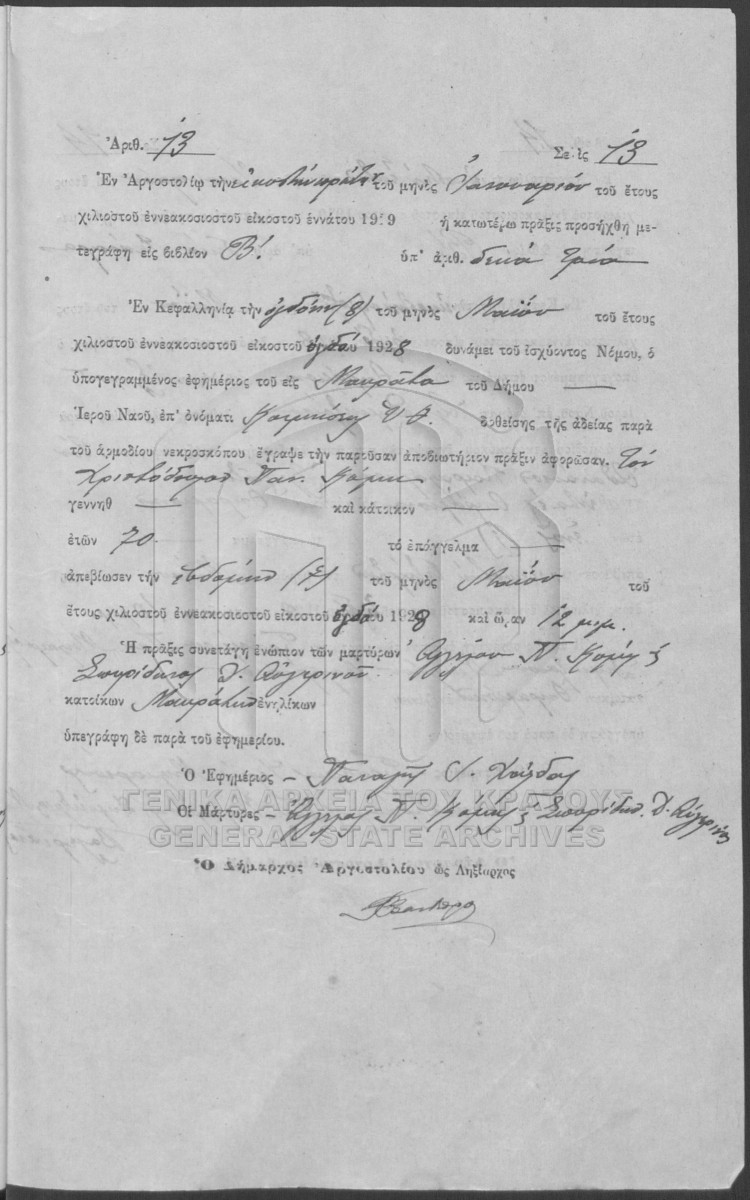 Ἀριθ. 13 Σελὶς 13
Ἐν Ἀργοστολίῳ τὴν εἰκοστὴν πρώτην τοῦ μηνὸς Ἰανουαρίου τοῦ ἔτους
χιλιοστοῦ ἐννεακοσιοστοῦ εἰκοστοῦ ἐννάτου 1929 ἡ κατωτέρω πρᾶξις προσήχθη με-
τεγράφη εἰς βιβλίον Β! ὑπ' ἀριθ. δεκα τρία
Ἐν Κεφαλληνίᾳ τὴν ὀγδόην (8) τοῦ μηνὸς Μαΐου τοῦ ἔτους
χιλιοστοῦ ἐννεακοσιοστοῦ εἰκοστοῦ ὀγδόου 1928 δυνάμει τοῦ ἰσχύοντος Νόμου, ὁ
ὑπογεγραμμένος ἐφημέριος τοῦ εἰς Μαυράτα τοῦ Δήμου —
Ἱεροῦ Ναοῦ, ἐπ' ὀνόματι Κοιμήσεως Θ. δοθείσης τῆς ἀδείας παρὰ
τοῦ ἁρμοδίου νεκροσκόπου ἔγραψε τὴν παροῦσαν ἀποβιωτήριον πρᾶξιν ἀφορῶσαν. Τὸν
Χριστόδουλον Παν.
γεννηθ — καὶ κάτοικον —
ἐτῶν 70 τὸ ἐπάγγελμα —
ἀπεβίωσεν τὴν ἑβδόμην (7) τοῦ μηνὸς Μαΐου τοῦ
ἔτους χιλιοστοῦ ἐννεακοσιοστοῦ εἰκοστοῦ ὀγδόου 1928 καὶ ὥραν 12 μ.μ.
Ἡ πρᾶξις συνετάγη ἐνώπιον τῶν μαρτύρων Π.
Σπυρίδωνος Δ. Αὐγερινοῦ
κατοίκων Μαυράτων ἐνηλίκων
ὑπεγράφη δὲ παρὰ τοῦ ἐφημερίου.
Ὁ Ἐφημέριος – Παναγῆς
ΓΕΝΙΚΑ ΑΡΧΕΙΑ ΤΟΥ ΚΡΑΤΟΥΣ
Οἱ Μάρτυρες – Π. Σπυρίδων Δ. Αὐγερινός
GENERAL STATE ARCHIVES
Ὁ Δήμαρχος Ἀργοστολίου ὡς Ληξίαρχος